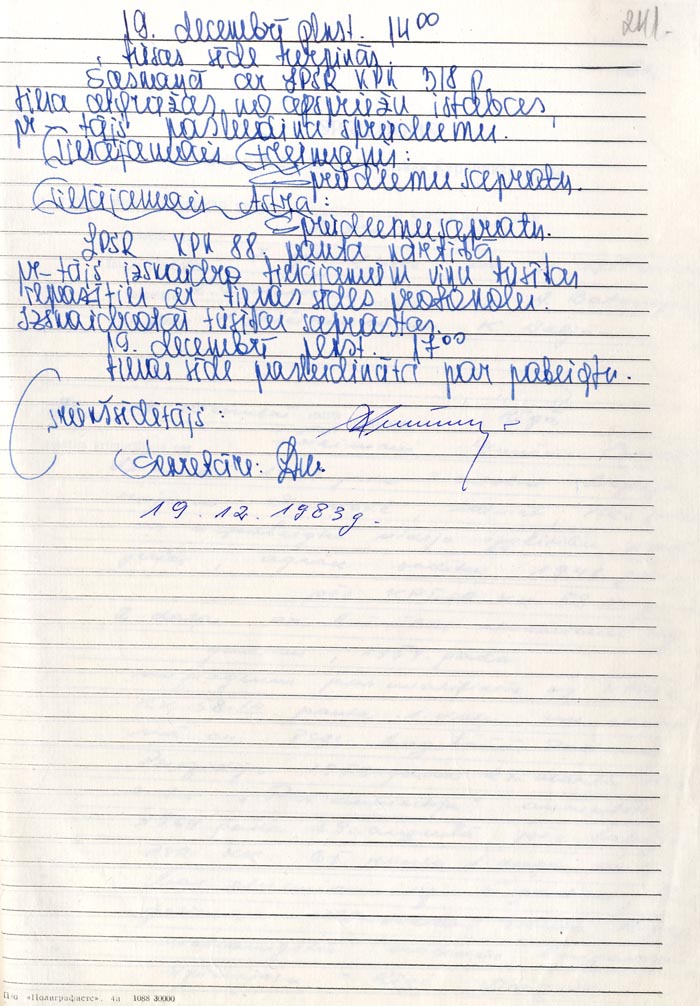 241.
19. decembrī plkst. 14⁰⁰
tiesas sēde turpinās.
Saskaņā ar LPSR KPK 318 p
tiesa atgriežas no apspriežu istabas,
pr-tājs pasludina spriedumu.
Tiesājamais
Spriedumu sapratu.
Tiesājamais Astra:
Spriedumu sapratu.
LPSR KPK 88. panta kārtībā
pr-tājs izskaidro tiesājamiem viņu tiesības
iepazīties ar tiesas sēdes protokolu.
Izskaidrotās tiesības saprastas.
19. decembrī plkst. 17⁰⁰
tiesas sēde pasludināta par pabeigtu.
Priekšsēdētājs:
Sekretāre:
19.12.1983g.
П/о «Полиграфист». 4а 1088 30000